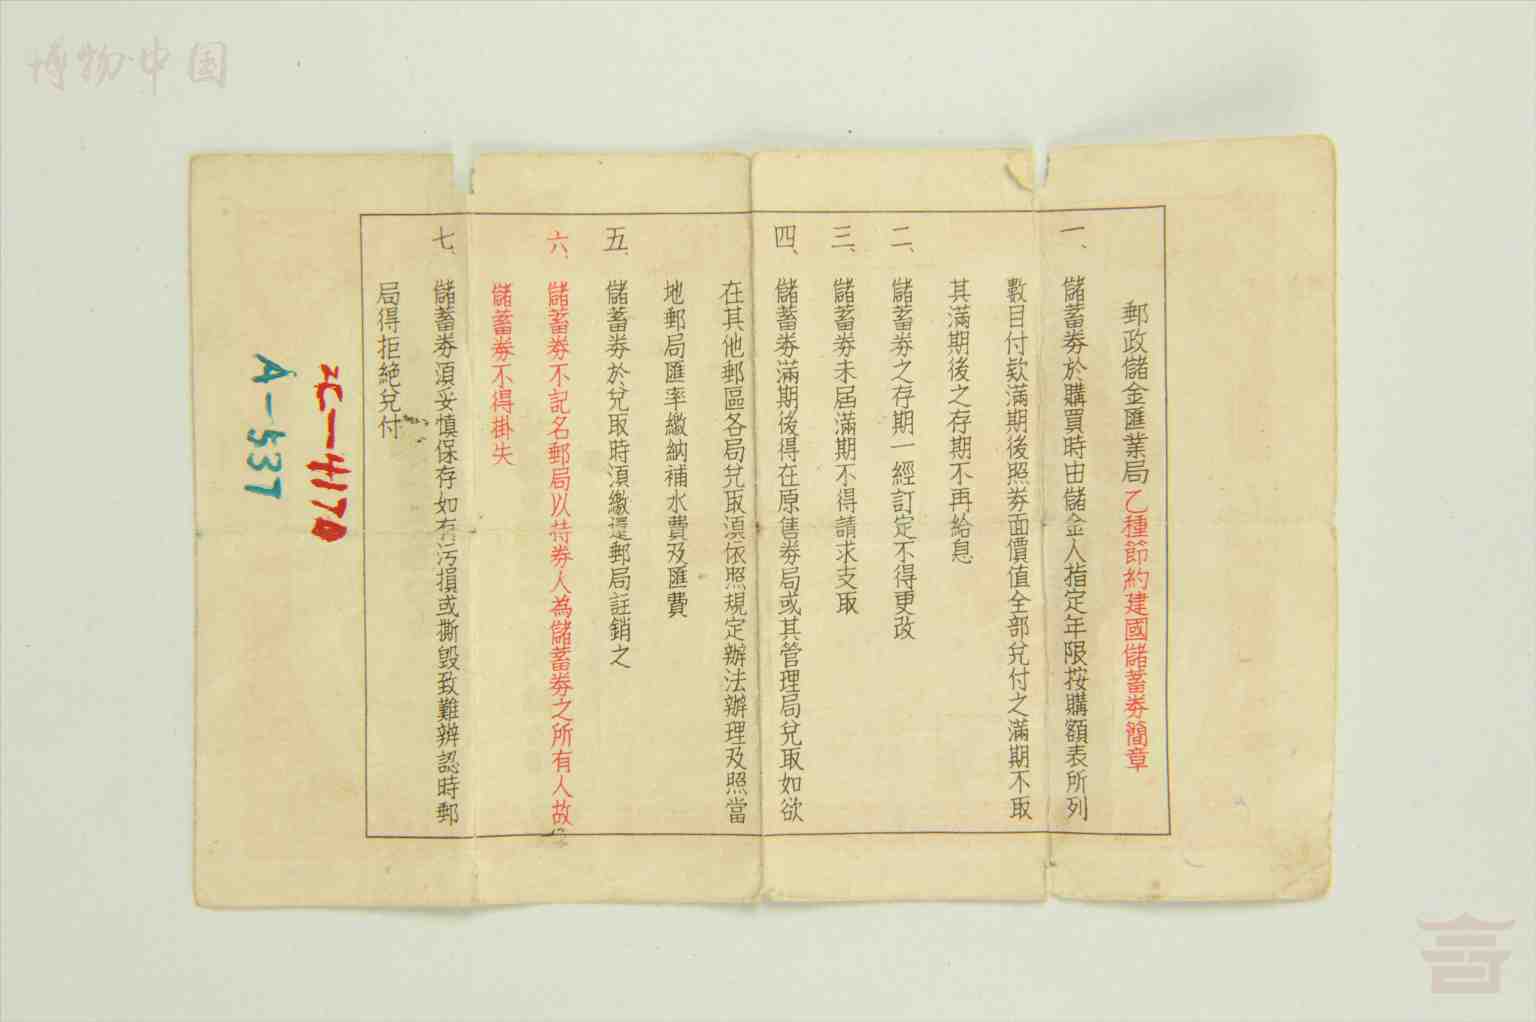 博物中国
郵政儲金匯業局乙種節約建國儲蓄券簡章
一、儲蓄券於購買時由儲金人指定年限按購額表所列
數目付款滿期後照券面價值全部兌付之滿期不取
其滿期後之存期不再給息
二、儲蓄券之存期一經訂定不得更改
三、儲蓄券未屆滿期不得請求支取
四、儲蓄券滿期後得在原售券局或其管理局兌取如欲
在其他郵區各局兌取須依照規定辦法辦理及照當
地郵局匯率繳納補水費及匯費
五、儲蓄券於兌取時須繳還郵局註銷之
六、儲蓄券不記名郵局以持券人為儲蓄券之所有人故
儲蓄券不得掛失
七、儲蓄券須妥慎保存如有污損或撕毀致難辨認時郵
局得拒絕兌付
ZC-4170
A-537